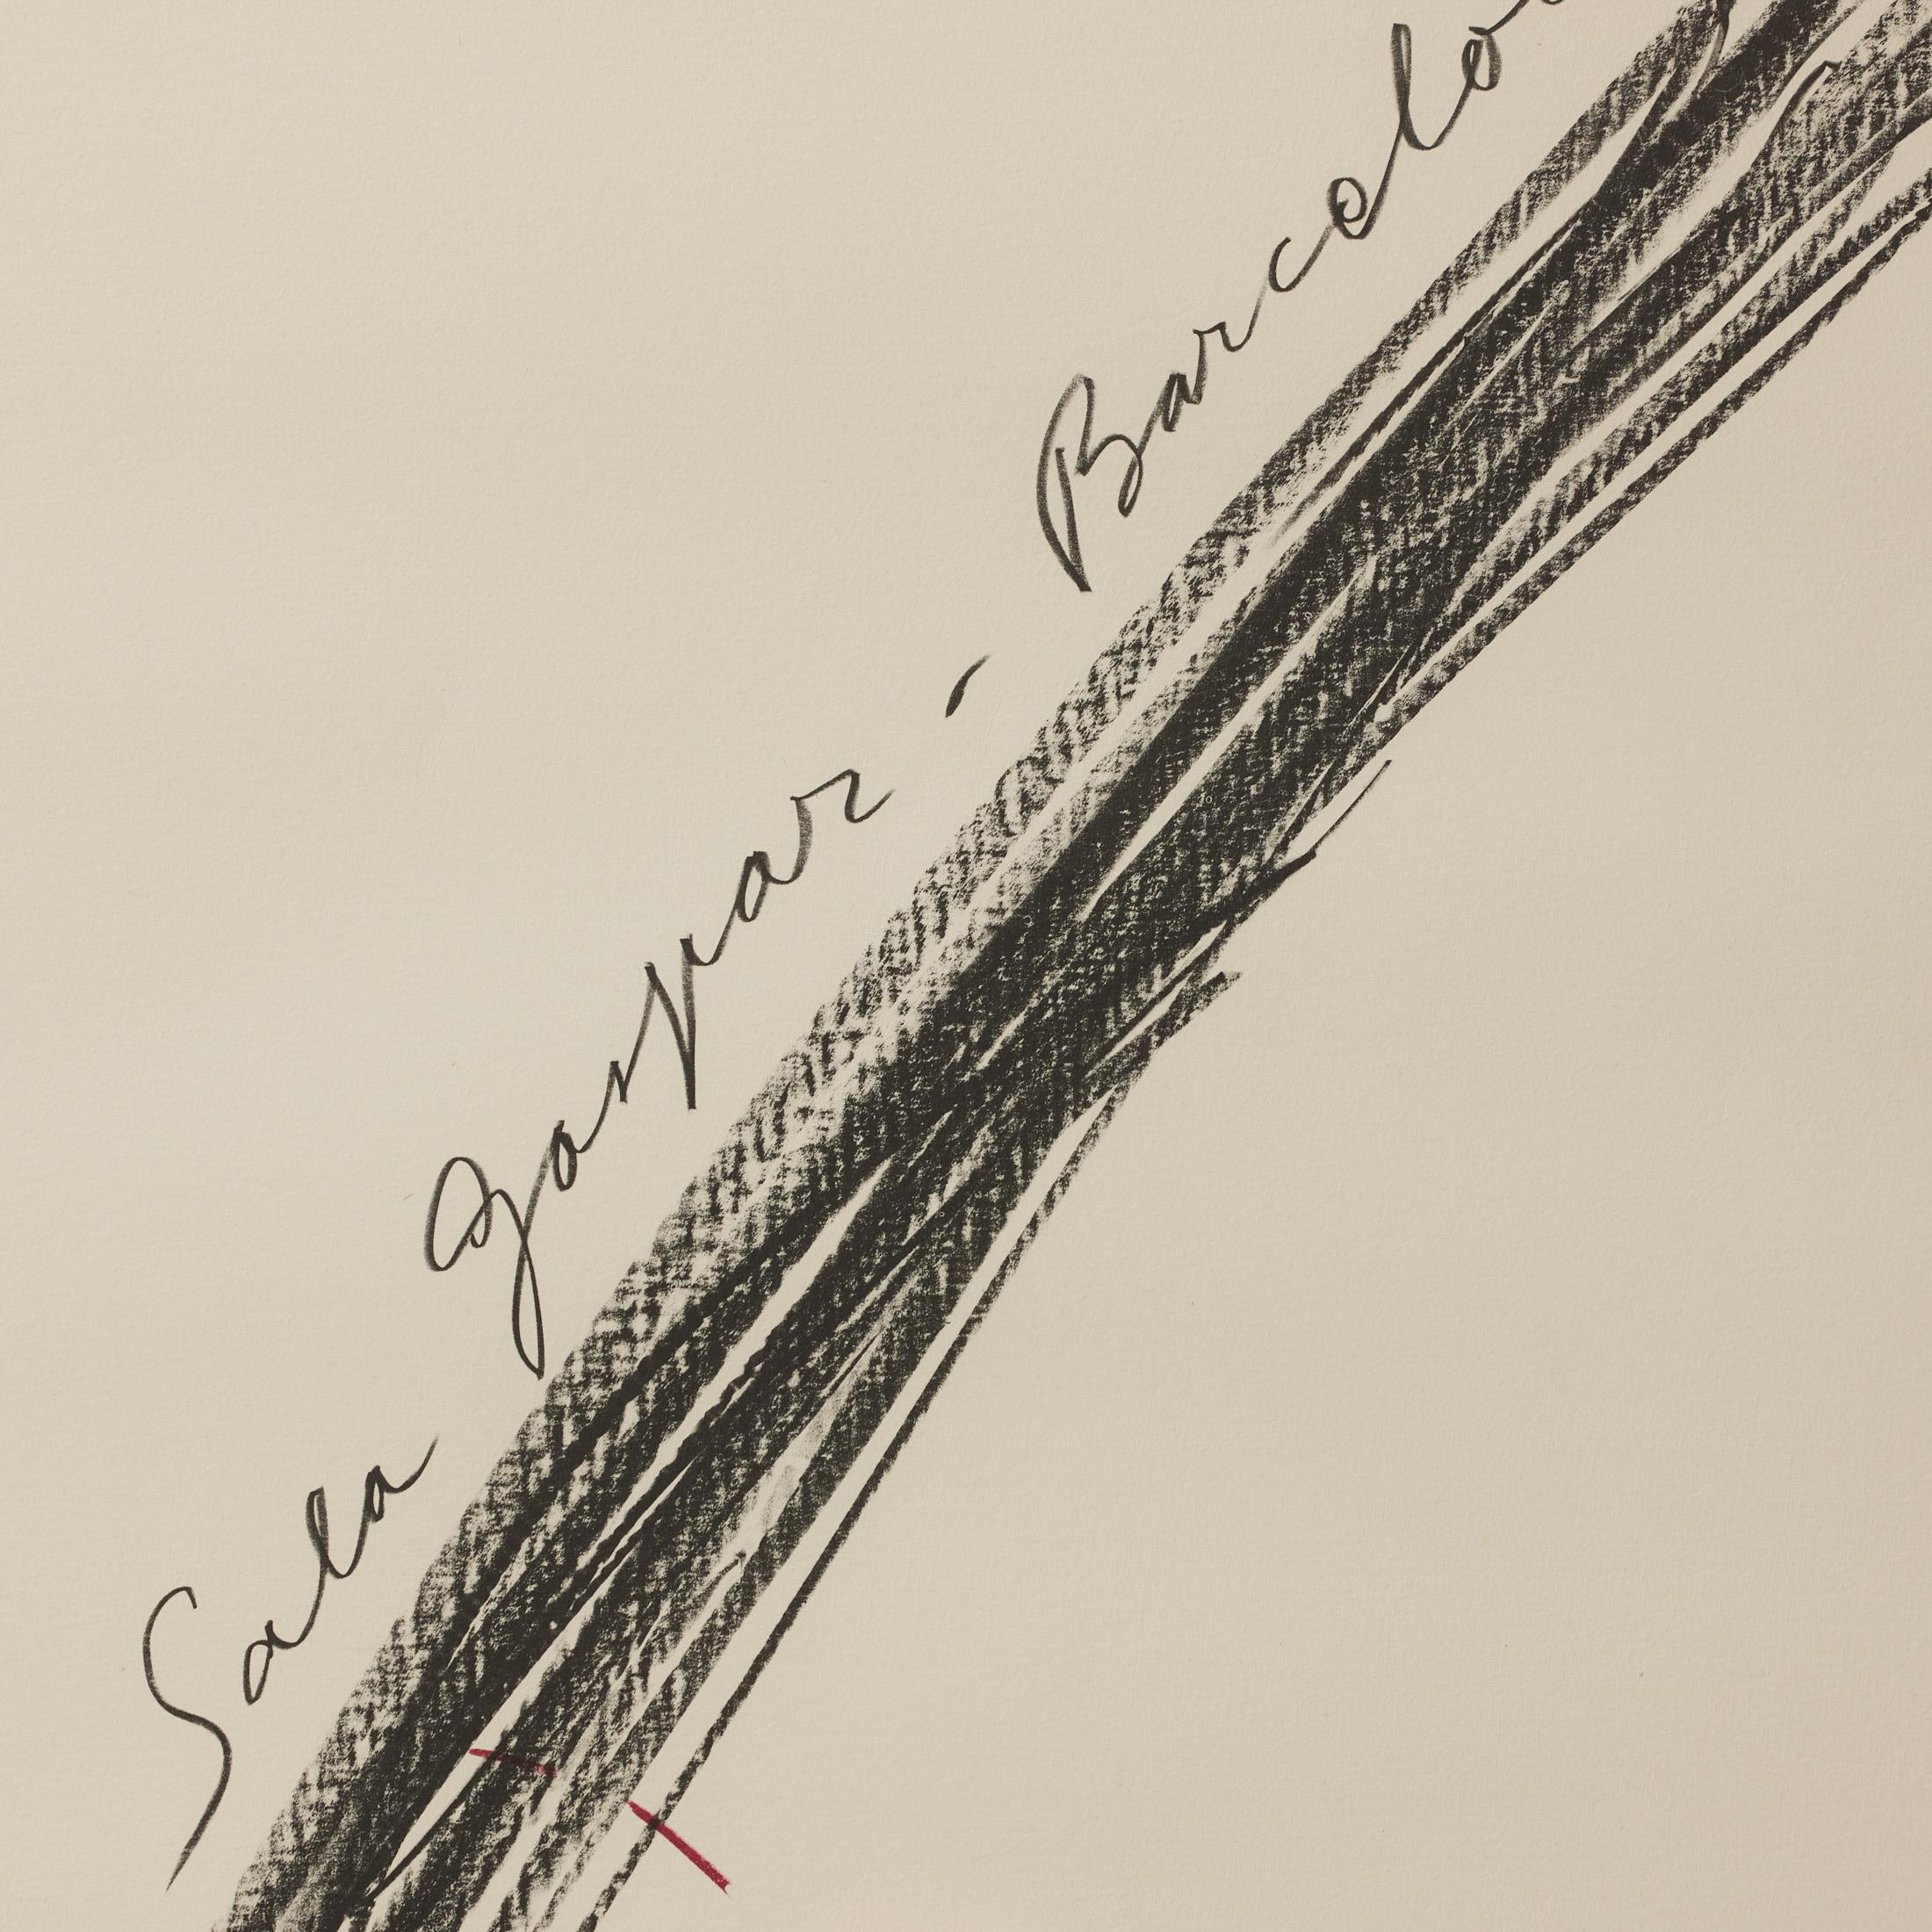 Sala Gaspar - Barcelo